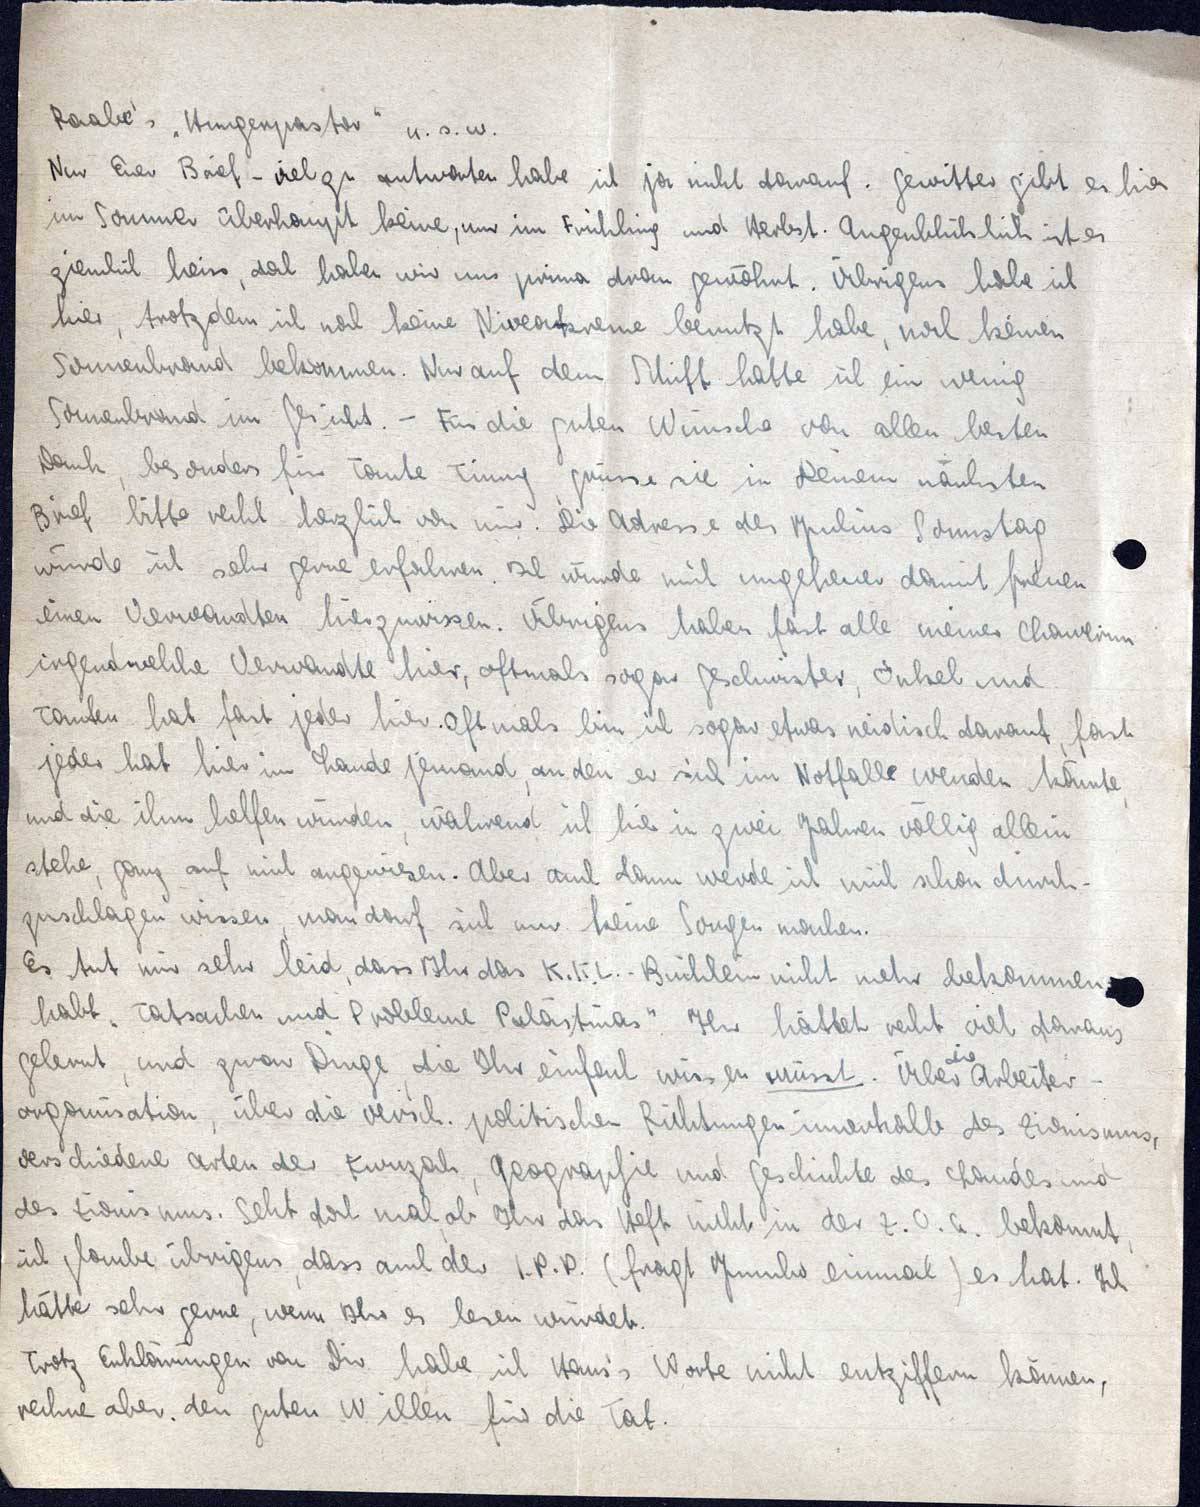 Raabe's „Hungerpastor“ u.s.w.
Nun Euer Brief - viel zu antworten habe ich ja nicht darauf. Gewitter gibt es hier
im Sommer überhaupt keine, nur im Frühling und Herbst. Augenblicklich ist es
ziemlich heiss, doch haben wir uns prima dran gewöhnt. Übrigens habe ich
hier, trotzdem ich noch keine Niveakreme benutzt habe, noch keinen
Sonnenbrand bekommen. Nur auf dem Schiff hatte ich ein wenig
Sonnenbrand im Gesicht. - Für die guten Wünsche von allen besten
Dank, besonders für Tante Tinny, grüsse sie in Deinem nächsten
Brief bitte recht herzlich von mir. Die Adresse des Julius Sonnstag
würde ich sehr gerne erfahren. Ich würde mich ungeheuer damit freuen
einen Verwandten hier zu wissen. Übrigens haben fast alle meiner Chawerim
irgendwelche Verwandte hier, oftmals sogar Geschwister, Onkel und
Tanten hat fast jeder hier. Oftmals bin ich sogar etwas neidisch darauf, fast
jeder hat hier im Lande jemand, an den er sich im Notfalle wenden könnte,
und die ihm helfen würden, während ich hier in zwei Jahren völlig allein
stehe, ganz auf mich angewiesen. Aber auch dann werde ich mich schon durch-
zuschlagen wissen, man darf sich nur keine Sorgen machen.
Es tut mir sehr leid, dass Ihr das K.K.L.-Büchlein nicht mehr bekommen
habt „Tatsachen und Probleme Palästinas“. Ihr hättet recht viel daraus
gelernt, und zwar Dinge, die Ihr einfach wissen müsst. Über die Arbeiter-
organisation, über die versch. politischen Richtungen innerhalb des Zionismus,
verschiedene Arten der Kwuzah, Geographie und Geschichte des Landes und
des Zionismus. Seht doch mal, ob Ihr das Heft nicht in der Z.O.G. bekommt,
ich glaube übrigens, dass auch der I.P.D. (fragt Jumbo einmal) es hat. Ich
hätte sehr gerne, wenn Ihr es lesen würdet.
Trotz Erklärungen von Dir habe ich Hans's Worte nicht entziffern können,
rechne aber den guten Willen für die Tat.